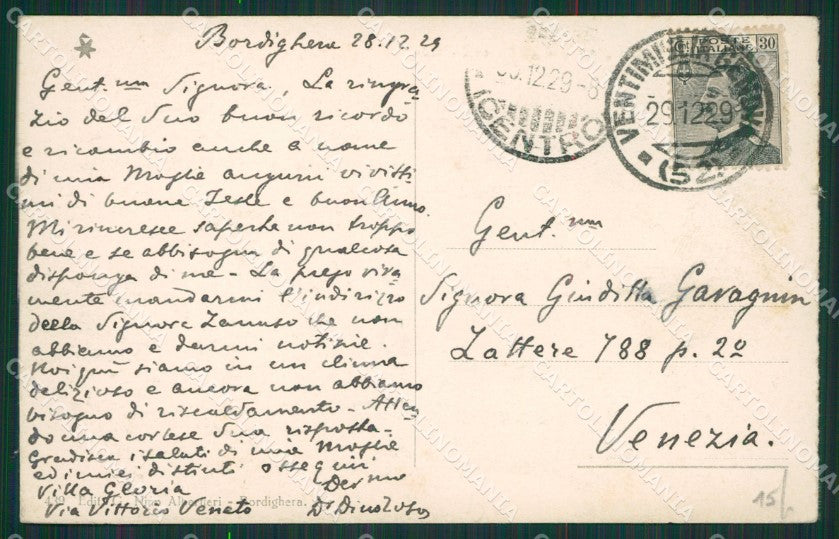 Bordighera 28.12.29
Gent.ma Signora, La ringra-
zio del Suo buon ricordo
e ricambio anche a nome
di mia Moglie auguri vivissi-
mi di buone Feste e buon Anno.
Mi rincresce saperla non troppo
bene e se abbisogna di qualcosa
disponga di me - La prego viva-
mente mandarmi l'indirizzo
della Signora Zanuso che non
abbiamo e darmi notizie.
Noi quì siamo in un clima
delizioso e ancora non abbiamo
bisogno di riscaldamento - Atten-
do una cortese Sua risposta -
Gradisca i saluti di mia Moglie
ed i miei distinti ossequi
Villa Gloria Dev.mo
439 Edit. G. Nino Alberieri - Bordighera.
Via Vittorio Veneto Dr Dino
12.29-8
(CENTRO)
VENTIMIGLIA GENOVA
29.12.29
(52)
POSTE ITALIANE
Ct. 30
Gent.ma
Signora Giuditta Gavagnin
Zattere 788 p. 2º
Venezia.
15
CARTOLINOMANIA